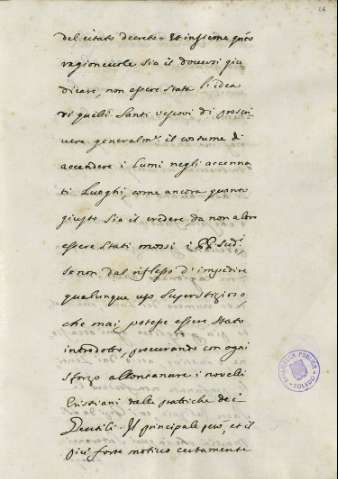 del citato decreto. Et insieme qnto
ragionevole sia il doversi giu
dicare, non essere stata l'idea
di quelli Santi vescovi di proscri
vere generalmte il costume di
accendere i lumi negli accenna
ti luoghi; come ancora quanto
giusto sia il credere da non altro
essere stati mossi i PP. sudi
se non dal riflesso d'impedire
qualunque uso superstizioso,
che mai potesse essere stato
introdotto, procurando con ogni
sforzo allontanare i novelli
Cristiani dalle pratiche dei
Gentili. Il principale però, et il
più forte motivo certamente
BIBLIOTECA PUBLICA
TOLEDO